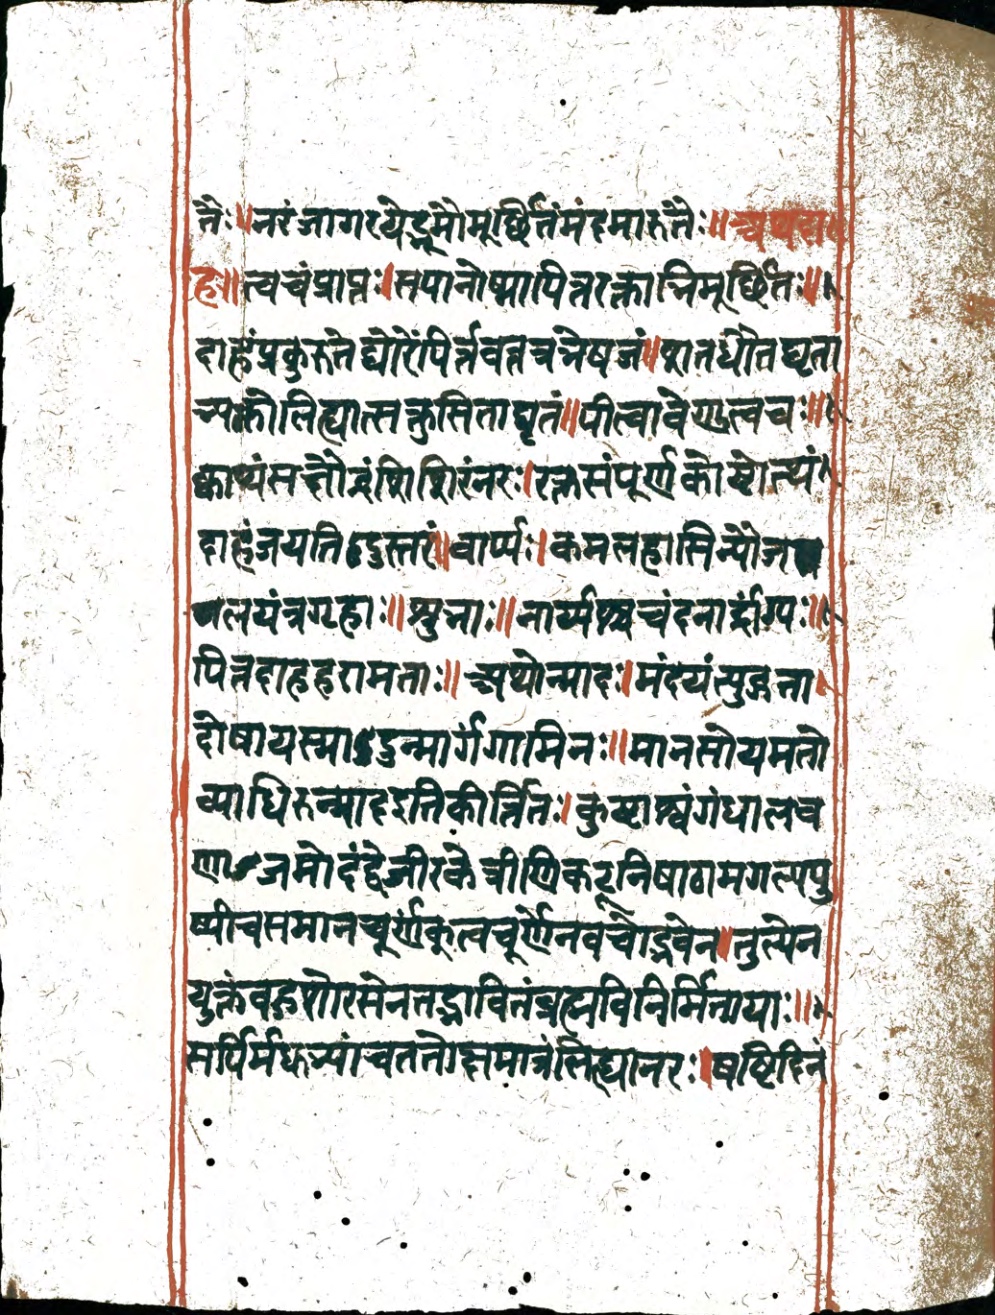 तैः॥नरं जागरयेद्भूमौ मूर्छितं मंदमारुतैः॥अथ दा
ह॥त्वचं प्राप्तः।सपानोष्मा पित्तरक्ताभिमूर्छितः॥
दाहं प्रकुरुते घोरं पित्तवत्तत्र भेषजं॥शतधौतघृता
भ्यक्तो लिह्यात्सक्तुसिताघृतं॥पीत्वा वेणुत्वचः॥
क्वाथं सक्षौद्रं शिशिरं नरः।रक्तसंपूर्णकोष्टोत्थं
दाहं जयति दुस्तरं॥वाप्यः।कमलहासिन्यो ज
जलयंत्रगृहाः॥श्रुभाः॥नार्य्यश्च चंदनार्द्रांग्यः॥
पित्तदाहहरा मताः॥अथोन्माद।मंदयंत्युद्गता
दोषा यस्मादुन्मार्गगामिनः॥मानसोयमतो
व्याधिरुन्माद इति कीर्त्तितः।कुष्टाश्वगंधा लव
णाजमोदं द्वे जीरके त्रीणि कटूनि पाठा मगल्यपु
ष्पी च समानचूर्णं कृत्वचूर्णेन वचोद्भवेन॥तुल्येन
युक्तं बहुशो रसेन तद्भावितं ब्रह्मविनिर्मिताया:॥
सर्पिर्मधुभ्यां च ततोक्षमात्रं लिह्यान्नरः।षष्टिदिनं